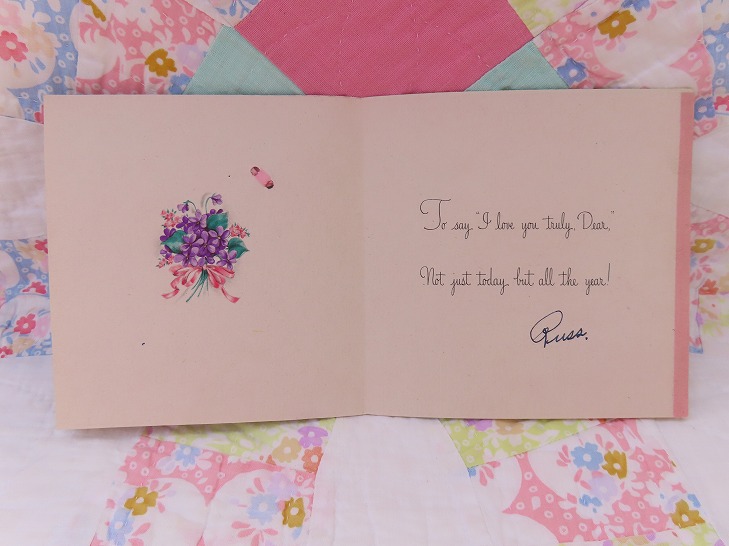 To say, "I love you truly, Dear,"
Not just today, but all the year!
Russ.